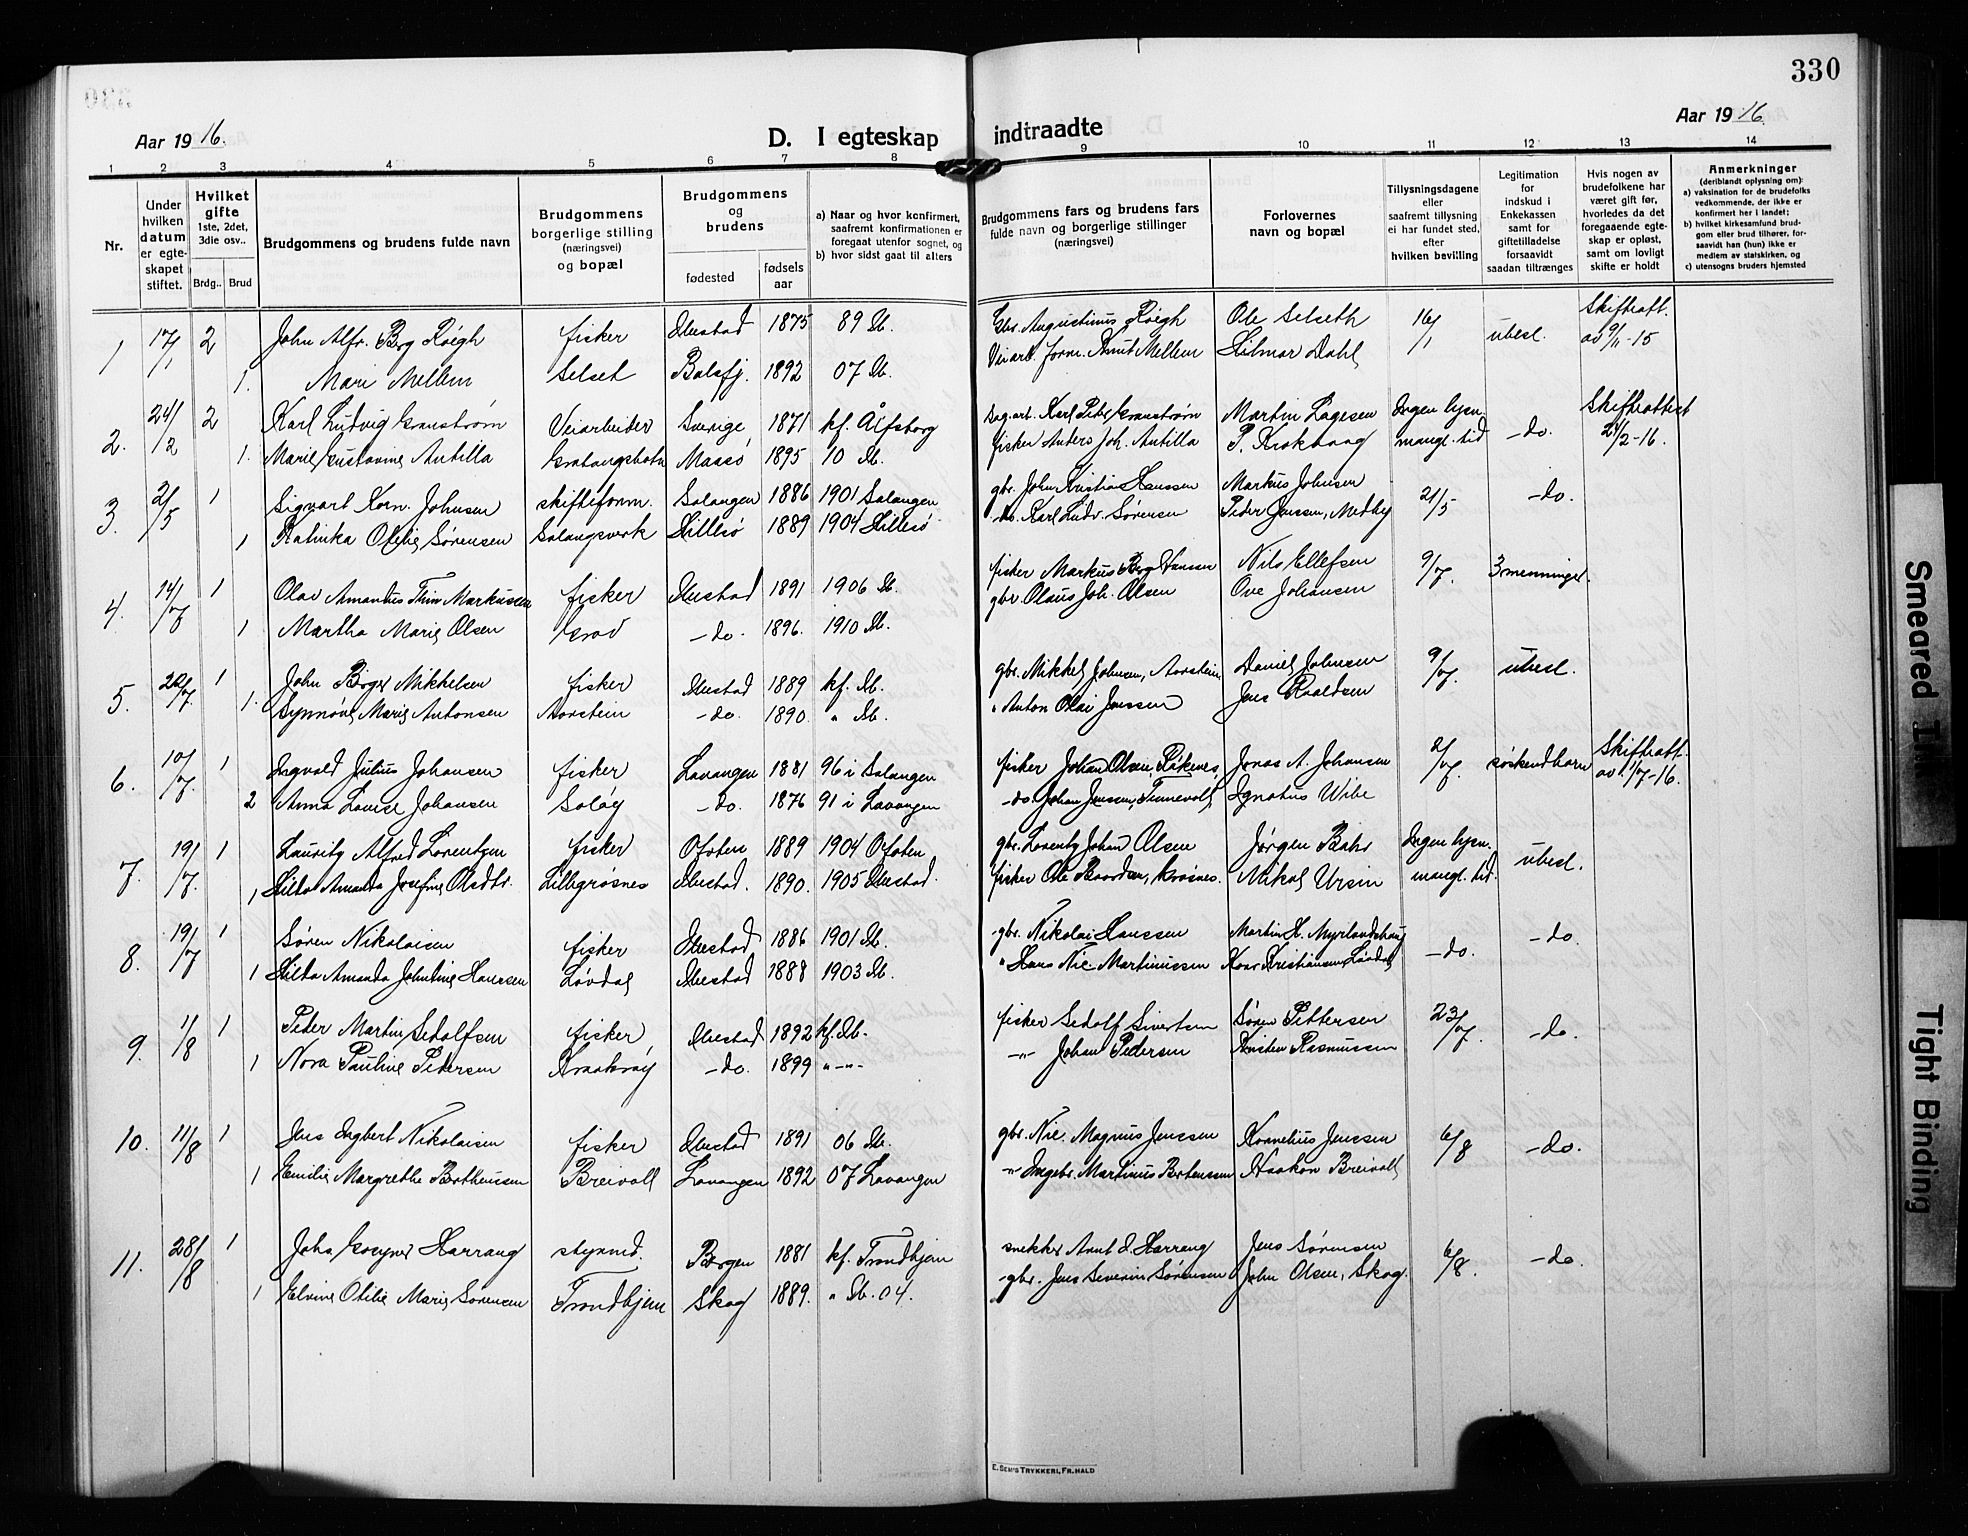 330
Aar 1916.
D. I egteskap indtraadte
Aar 1916.
1 2 3 4 5 6 7 8 9 10 11 12 13 14
Nr.
Under hvilken datum er egteskapet stiftet.
Hvilket gifte 1ste, 2det, 3die osv..
Brdg.. Brud
Brudgommens og brudens fulde navn
Brudgommens borgerlige stilling (næringsvei) og bopæl
Brudgommens og brudens
fødested
fødsels aar
a) Naar og hvor konfirmert, saafremt konfirmationen er foregaat utenfor sognet, og
b) hvor sidst gaat til alters
Brudgommens fars og brudens fars fulde navn og borgerlige stillinger (næringsvei)
Forlovernes navn og bopæl
Tillysningsdagene eller saafremt tillysning ei har fundet sted, efter hvilken bevilling
Legitimation for indskud i Enkekassen samt for giftetilladelse forsaavidt saadan tiltrænges
Hvis nogen av brudefolkene har været gift før, hvorledes da det foregaaende egteskap er opløst, samt om lovligt skifte er holdt
Anmerkninger (deriblandt oplysning om):
a) vaksination for de brudefolks vedkommende, der ikke er konfirmert her i landet;
b) hvilket kirkesamfund brudgom eller brud tilhører, forsaavidt han (hun) ikke er medlem av statskirken, og
c) utensogns bruders hjemsted
1 17/1 2 John Alfr. Berg Røigh fisker Ibestad 1875 89 Ib. Gbr. Augustinus Røigh Ole Selseth 16/1 ubesl. Skifteatt. av 9/11-15
1. Mari Mellem Selset Balsfj. 1892 07 Ib. Veiarb. form. Knut Mellem Hilmar Dahl
2. 24/2 2 Karl Ludvig Granstrøm Veiarbeider Sverige 1871 kf. Älfsborg Dag.arb. Karl Peter Granstrøm Martin Lagesen Ingen lysn. mangl. tid -do. Skifteattest 24/2-16.
1. Marie Gustavine Antilla Gratangsbotn Massö 1895 10 Ib. fisker Anders Joh. Antilla P. Krokhaug
3. 2/5 1 Sigvart Korn. Johnsen skifteform. Salangen 1886 1901 Salangen gbr. John Kristian Hanssen Markus Johnsen 21/5 -do.
1 Kalinka Otelie Sørensen Salangsverk Hillesö 1889 1904 Hillesö -do. Karl Ludv. Sørensen Peder Jenssen, Medby
4. 14/7 1 Olav Amandus Thim Markussen fisker Ibestad 1891 1906 Ib. fisker Markus Berg Hansen Nils Ellefsen 9/7. 3menninger.
1 Martha Marie Olsen Grov -do. 1896. 1910 Ib. gbr. Olaus Joh. Olsen Ove Johansen
5. 20/7. 1 John Birger Mikkelsen fisker Ibestad 1889 kf. Ib. gbr. Mikkel Johnsen, Aarstein Daniel Johnsen 9/7. ubesl.
1. Synnöve Marie Antonsen Aarstein -do. 1890. " Ib. " Anton Olai Jenssen Jens Roaldsen
6. 10/7. 1 Ingvald Julius Johansen fisker Lavangen 1881 96 i Salangen fisker Johan Olsen, Røkenes Jonas A. Johansen 2/7. søskendbarn Skifteatt. av 1/7-16.
2 Anna Lovise Johansen Soløy -do. 1876 91 i Lavangen -do. Johan Jenssen, Tennevoll Ignatius Wibe
7. 19/7. 1 Lauritz Alfred Lorentzen fisker Ofoten 1889 1904 Ofoten gbr. Lorentz Johan Olsen Jørgen Bahr Ingen lysn. mangl. tid. ubesl.
1 Hilda Amanda Josefine Olsdtr. Lillegrøsnes Ibestad. 1890. 1905 Ibestad. fisker Ole Baardsen, Grøsnes. Mikal Ursin
8. 19/7 1 Søren Nikolaisen fisker Ibestad 1886 1901 Ib. gbr. Nikolai Hanssen Martin H. Myrlandshaug -do. -do.
1 Hilda Amanda Johntine Hanssen Løvdal Ibestad 1888 1903 Ib. " Hans Nic. Martinussen Konr. Kristiansen, Løvdal
9. 1/8 1 Peder Martin Sedolfsen fisker Ibestad 1892 kf. Ib. fisker Sedolf Sivertsen Søren Pettersen 23/7. -do.
1 Nora Pauline Pedersen Kraakrøy -do. 1899 " -"- -"- Johan Pedersen Kristen Rasmussen
10. 11/8 1 Jens Ingbert Nikolaisen fisker Ibestad 1891 06 Ib. gbr. Nic. Magnus Jenssen Kornelius Jenssen 6/8 -do.
1 Emilie Margrethe Bertheussen Breivoll Lavangen 1892 07 Lavangen -"- Ingebr. Martinus Bertenssen Haakon Breivoll
11. 28/8 1 John Gosyner Harrang styrmd. Bergen 1881 kf. Trondhjem snekker Arnt d. Harrang Jens Sørensen 6/8. -do.
1 Elvine Otilie Marie Sørensen Trondhjem Skog 1889. " Ib. 04. gbr. Jens Severin Sørensen John Olsen, Skog.
E. SEM'S TRYKKERI, FR.HALD
Smeared Ink
Tight Binding